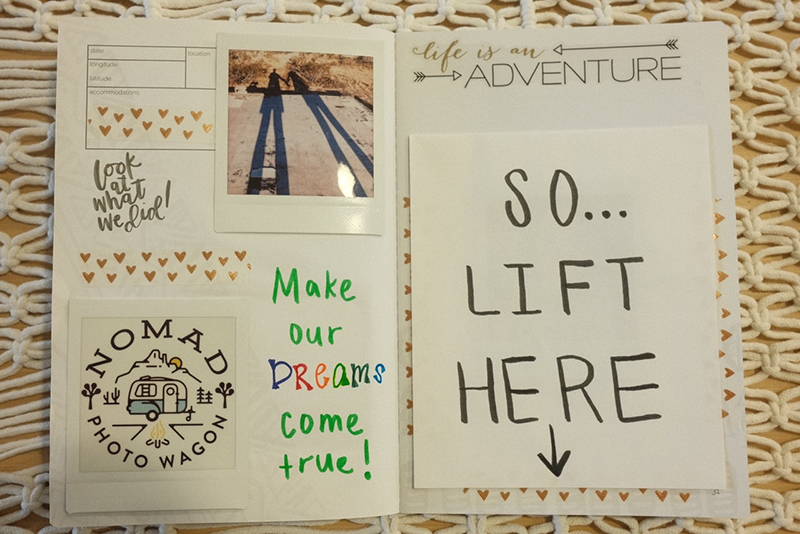 date
location
longitude
latitude
accommodations
look
at
what
we did!
NOMAD
PHOTO WAGON
Make
our
DREAMS
come
true!
life is an
ADVENTURE
SO...
LIFT
HERE